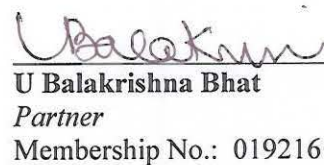 UBalakrin
U Balakrishna Bhat
Partner
Membership No.: 019216